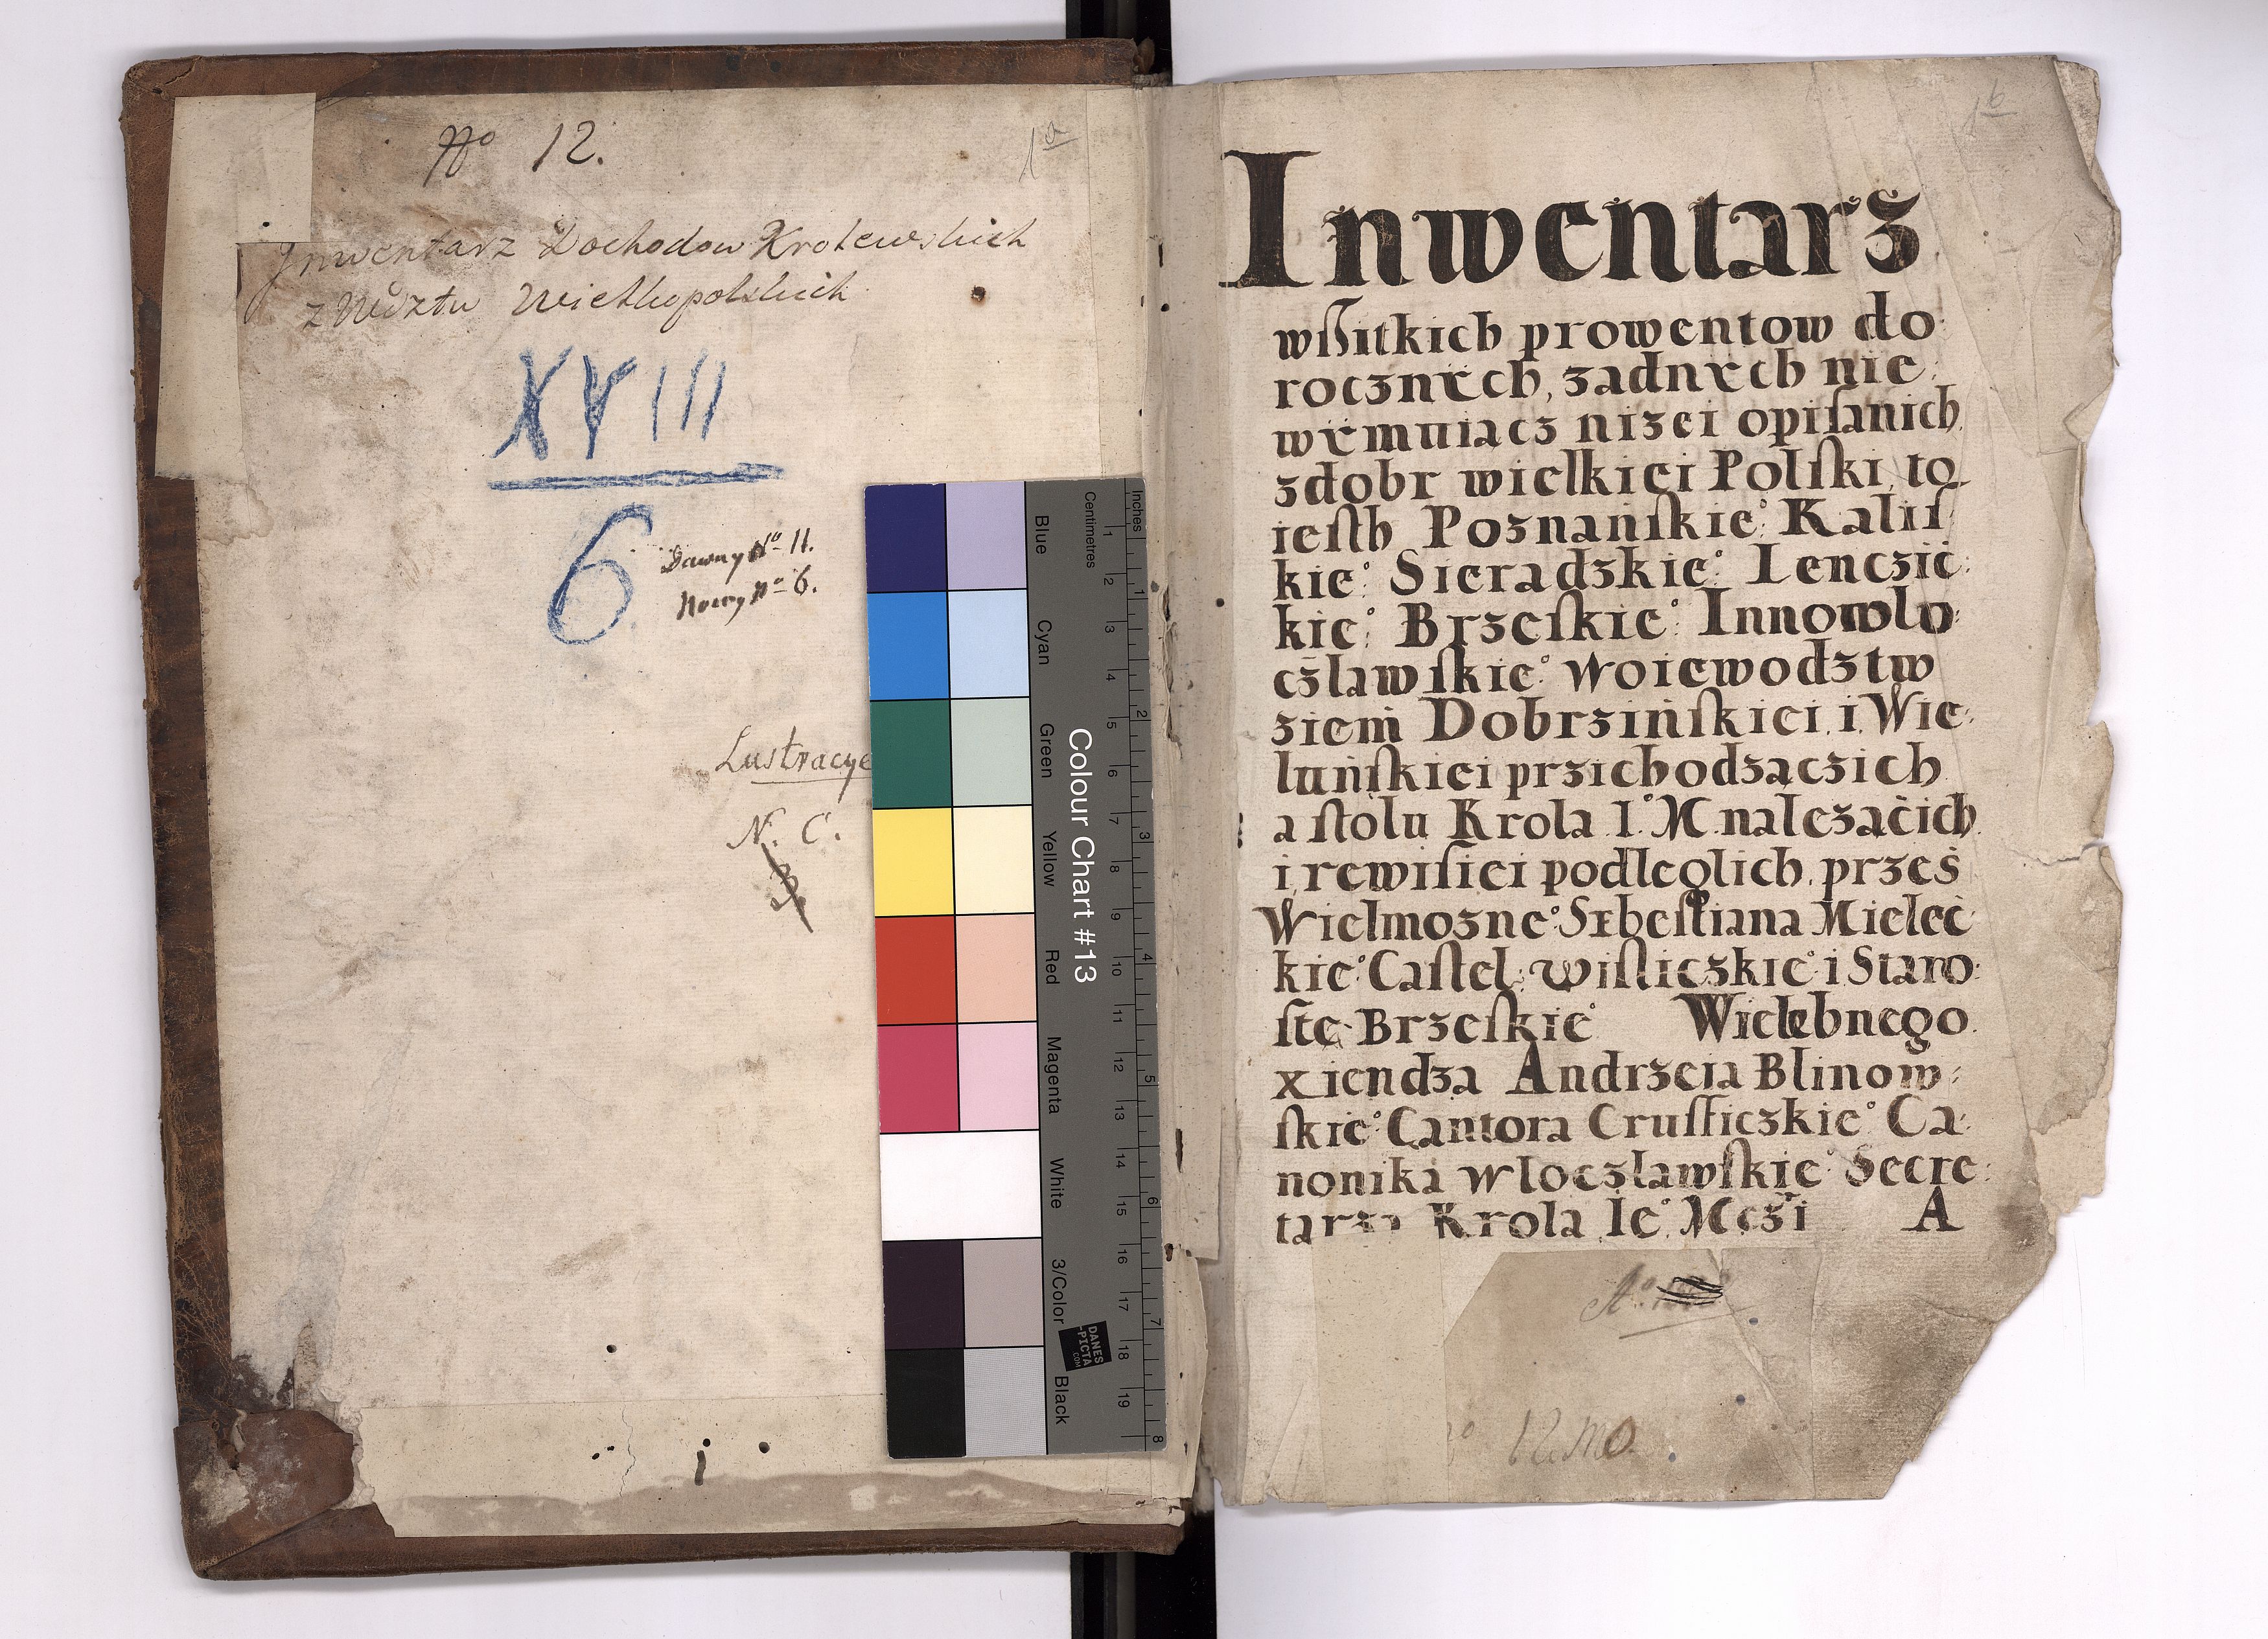 No 12.
1a
Inwentarz Dochodow Krolewskich
z Wdztw Wielkopolskich
XVIII
6
Dawny No 11.
Nowy No 6.
Lustracye
N. C.
Inches
Centimetres
Colour Chart #13
Blue
Cyan
Green
Yellow
Red
Magenta
White
3/Color
Black
DANES
-PICTA
.COM
1 2 3 4 5 6 7 8 9 10 11 12 13 14 15 16 17 18 19
1 2 3 4 5 6 7 8
1b
Inwentarz
wſſitkich prowentow do
rocznych, zadnych nie:
wymuiacz nizei opiſanich
zdobr wielkiei Polſki, to
ieſth Poznanſkie° Kaliſ
kie° Sieradzkie° Lenczic:
kie° Brzeſkie° Innowlo:
czlawſkie° Woiewodztw
ziem Dobrzinſkiei, i Wie:
lunſkiei przichodzaczich
a ſtolu Krola I° M nalezacich
i rewiſiei podleglich, przes
Wielmozne° Sebeſtiana Mielec
kie° Caſtel: wiſliczkie° i Staro:
ſte Brzeſkie° Wielebnego
xiendza Andrzeia Blinow:
ſkie° Cantora Cruſſiczkie° Ca:
nonika wloczlawſkie° Secre:
tarza Krola Ie° Mczi A
12mo.